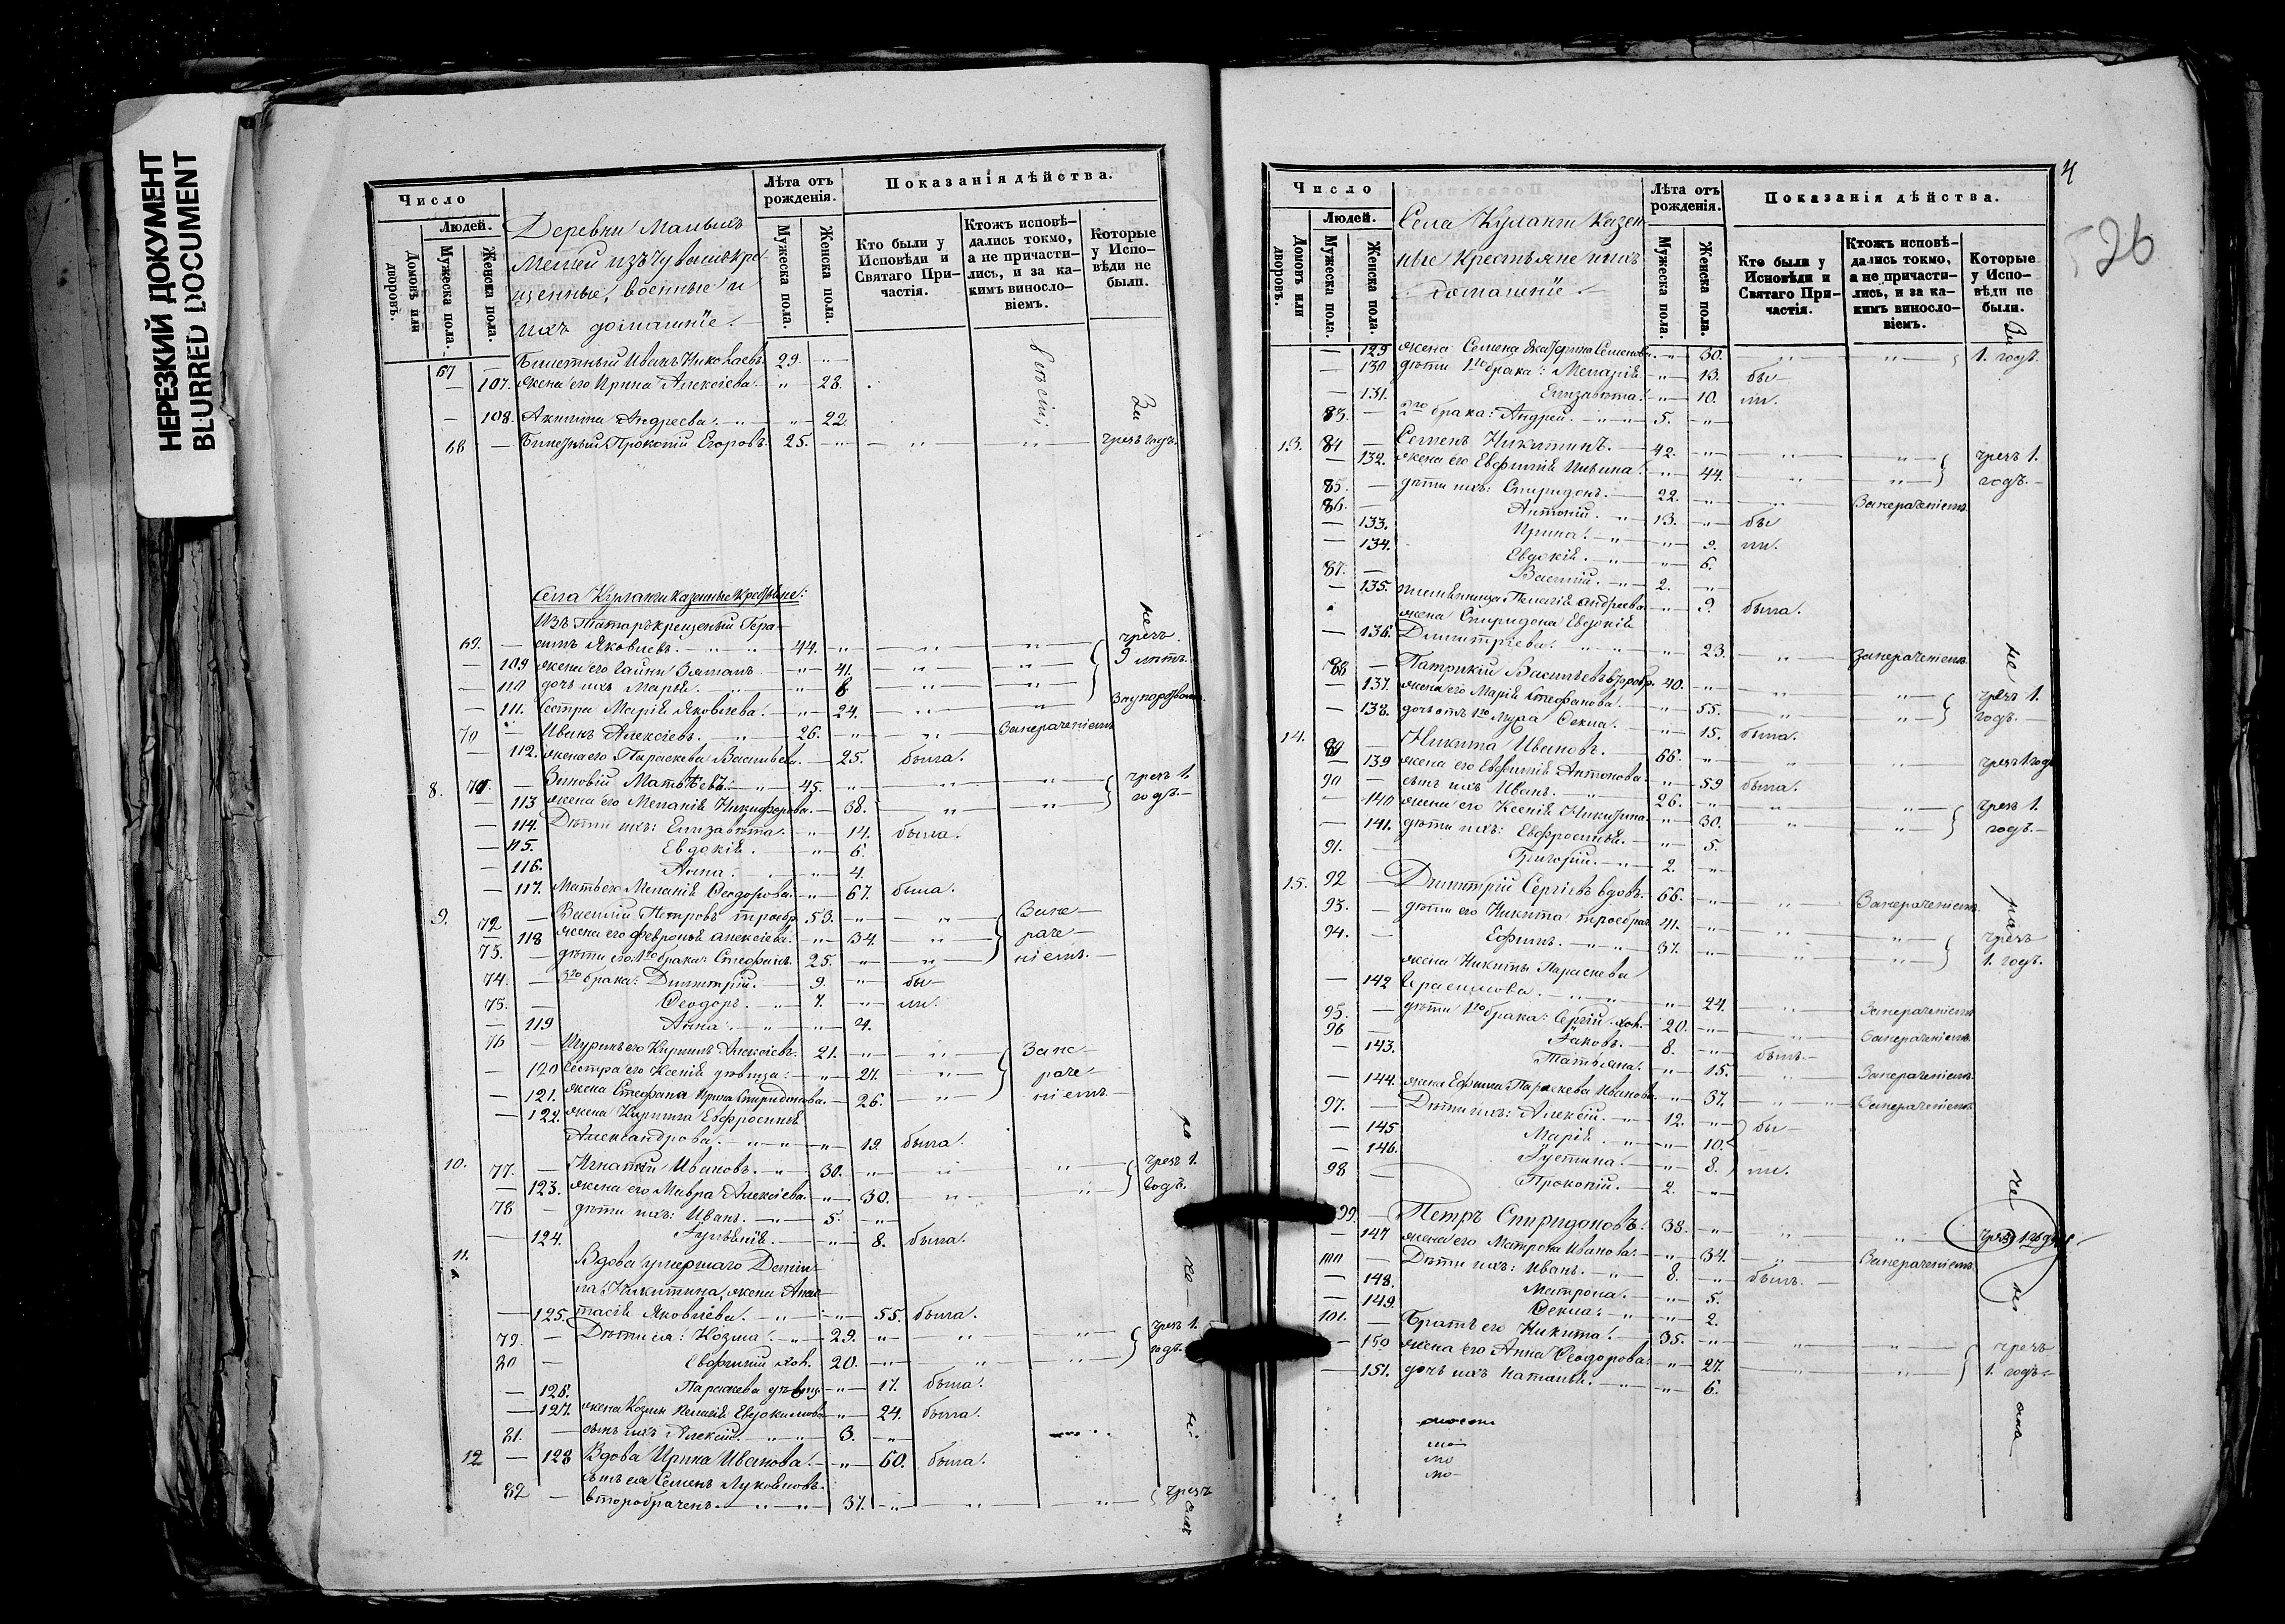 НЕРЕЗКИЙ ДОКУМЕНТ
BLURRED DOCUMENT
Число
Людей.
Домовъ или дворовъ.
Мужеска пола.
Женска пола.
Деревни Малыхъ
Мемей изъ Чувашъ кре-
щенные, военные и
ихъ домашніе.
Лѣта отъ рожденія.
Мужеска пола.
Женска пола.
Показанія дѣйства.
Кто были у Исповѣди и Святаго При-частія.
Ктожъ исповѣ-дались токмо, а не причасти-лись, и за ка-кимъ винословіемъ.
Которые у Испо-вѣди не были.
67 — Билетный Иванъ Николаевъ. 29.
— 107. жена его Ирина Алексіева. 28.
— 108. Акилина Андреева. 22.
68 — Билетный Прокопій Егоровъ. 25. чрезъ годъ.
Села Куланги казенные крестьяне:
Изъ Татаръ крещеный Гера-
69. — симъ Яковлевъ. 44. чрезъ
— 109 жена его 41. 9 лѣтъ.
— 110 дочь ихъ Марья. 8.
— 111. Сестра Марія Яковлева. 24.
70 — Иванъ Алексіевъ. 26. Занераченіемъ
— 112. жена его Параскева Васильева. 25. была.
8. 71. — Зиновій Матвѣевъ. 45. чрезъ 1.
— 113 жена его Меланія Никифорова. 38. годъ.
— 114. Дѣти ихъ: Елизавета. 14. была.
— 115. Евдокія. 6.
— 116. Анна. 4.
— 117. Мать его Меланія Ѳеодорова. 67. была.
9. 72 — Василій Петровъ троебр. 53. Зане-
— 118 жена его Февронья Алексіева. 34. раче-
73. — дѣти его: 1го брака: Стефанъ. 25. ніемъ.
74. — 3го брака: Димитрій. 9. бы-
75. — Ѳеодоръ. 7. ли.
— 119 Анна. 4.
76 — Шуринъ его Кирилъ Алексіевъ. 21. Зане-
— 120 Сестра его Ксенія дѣвица. 21. раче-
— 121. жена Стефана Ирина Спиридонова. 26. ніемъ.
— 122. жена Кирилла Евфросинія
Александрова. 19. была.
10. 77. — Игнатій Ивановъ. 30. чрезъ 1.
— 123. жена его Мавра Алексіева. 30. годъ.
78 — дѣти ихъ: Иванъ. 5.
— 124. Гуліанія. 8. была.
11. Вдова умершаго
Никитина, жена Анас-
— 125. тасія Яковлева. 55. была.
79. — Дѣти ея: Козма. 29. чрезъ 1.
80 — Евфимій хол. 20. годъ.
— 126. Параскева дѣвиц. 17. была.
— 127. жена Козмы Пелагія Евдокимова 24. была.
81. — сынъ ихъ Алексій. 3.
12 — 128 Вдова Ирина Иванова. 60. была.
сынъ ея Семенъ Лукояновъ.
82 — второбраченъ. 37. чрезъ
4
526
Число
Людей.
Домовъ или дворовъ.
Мужеска пола.
Женска пола.
Села Куланги Казен-
ные Крестьяне и ихъ
домашніе.
Лѣта отъ рожденія.
Мужеска пола.
Женска пола.
Показанія дѣйства.
Кто были у Исповѣди и Святаго При-частія.
Ктожъ исповѣ-дались токмо, а не причасти-лись, и за ка-кимъ винословіемъ.
Которые у Испо-вѣди не были.
— 129 жена Семена Екатерина Семенова. 30. 1. годъ.
— 130 дѣти 1го брака: Меланія. 13. бы-
— 131. Елизавета. 10. ли.
83. — 2го брака: Андрей. 5.
13. 84 — Семенъ Никитинъ. 42. чрезъ 1.
— 132. жена его Евфимія Ильина. 44. годъ.
85. — дѣти ихъ: Спиридонъ. 22. Занераченіемъ.
86. — Антоній. 13. бы
— 133. Ирина. 9. ли.
— 134. Евдокія. 6.
87. — Василій. 2.
— 135. племянница Пелагія Андреева 9. была.
жена Спиридона Евдокія
— 136. Димитріева. 23. занераченіемъ.
88 — Патрикій Васильевъ второбр. 40. чрезъ 1.
— 137. жена его Марія Стефанова. 55. годъ.
— 138. дочь отъ 1го мужа Ѳекла. 15. была.
14. 89 — Никита Ивановъ. 66. чрезъ 1 годъ
— 139 жена его Евфимія Антонова. 59 была.
90 — сынъ ихъ Иванъ. 26. чрезъ 1.
— 140 жена его Ксенія Никитина. 30. годъ.
— 141. дѣти ихъ: Евфросинія. 5.
91. — Григорій. 2.
15. 92 — Димитрій Сергіевъ вдовъ. 66. Занераченіемъ.
93. — дѣти его Никита троебрач. 41. чрезъ
94. — Ефимъ. 37. 1. годъ.
жена Никиты Параскева
— 142 Герасимова. 24. Занераченіемъ
95. — дѣти 1го брака: Сергій хол. 20. Занераченіемъ.
96 — Іаковъ. 8. былъ.
— 143. Татьяна. 15. Занераченіемъ.
— 144. жена Ефима Параскева Иванова. 37. Занераченіемъ.
97. — Дѣти ихъ: Алексій. 12. бы-
— 145 Марія. 10.
— 146. Іустина. 8. ли.
98 — Прокопій. 2.
99. — Петръ Спиридоновъ. 38. чрезъ 1 годъ
— 147 жена его Матрона Иванова. 34. Занераченіемъ.
100 — Дѣти ихъ: Иванъ. 8. былъ.
— 148. Матрона. 5.
— 149. Ѳекла. 2.
101. — Братъ его Никита. 35. чрезъ
— 150 жена его Анна Ѳеодорова. 27. 1. годъ.
— 151. дочь ихъ Наталія. 6.